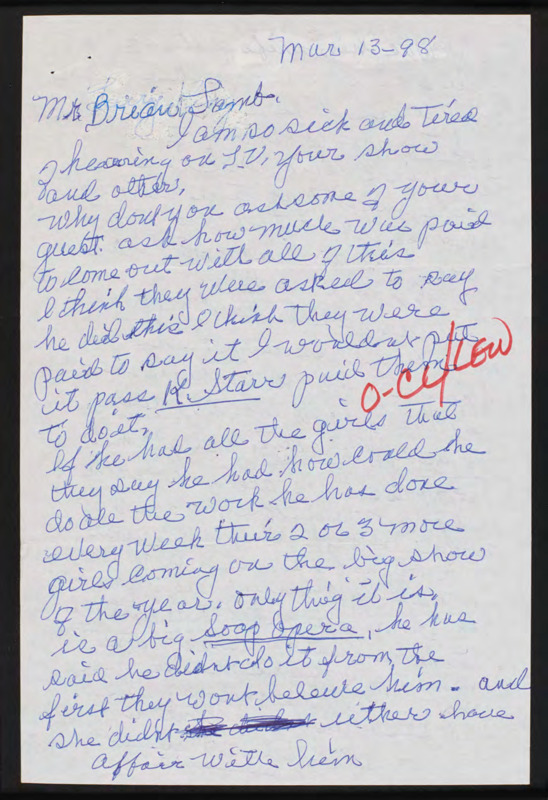 Mar 13-98
Mr. Brian Lamb.
I am so sick and tired
of hearing on T.V, your show
and other.
Why dont you ask some of your
guest ask how much was paid
to come out with all of this
I think they were asked to say
he did this I think they were
paid to say it I wouldnt put
it pass K. Starr paid them
O-CC/LEW
to do it.
If he has all the girls that
they say he had how could he
do all the work he has done
every week theirs 2 or 3 more
girls coming on the big show
of the year. only thing it is,
is a big Soap Opera, he has
said he didnt do it from the
first they wont beleive him. and
she didnt either have
affair with him